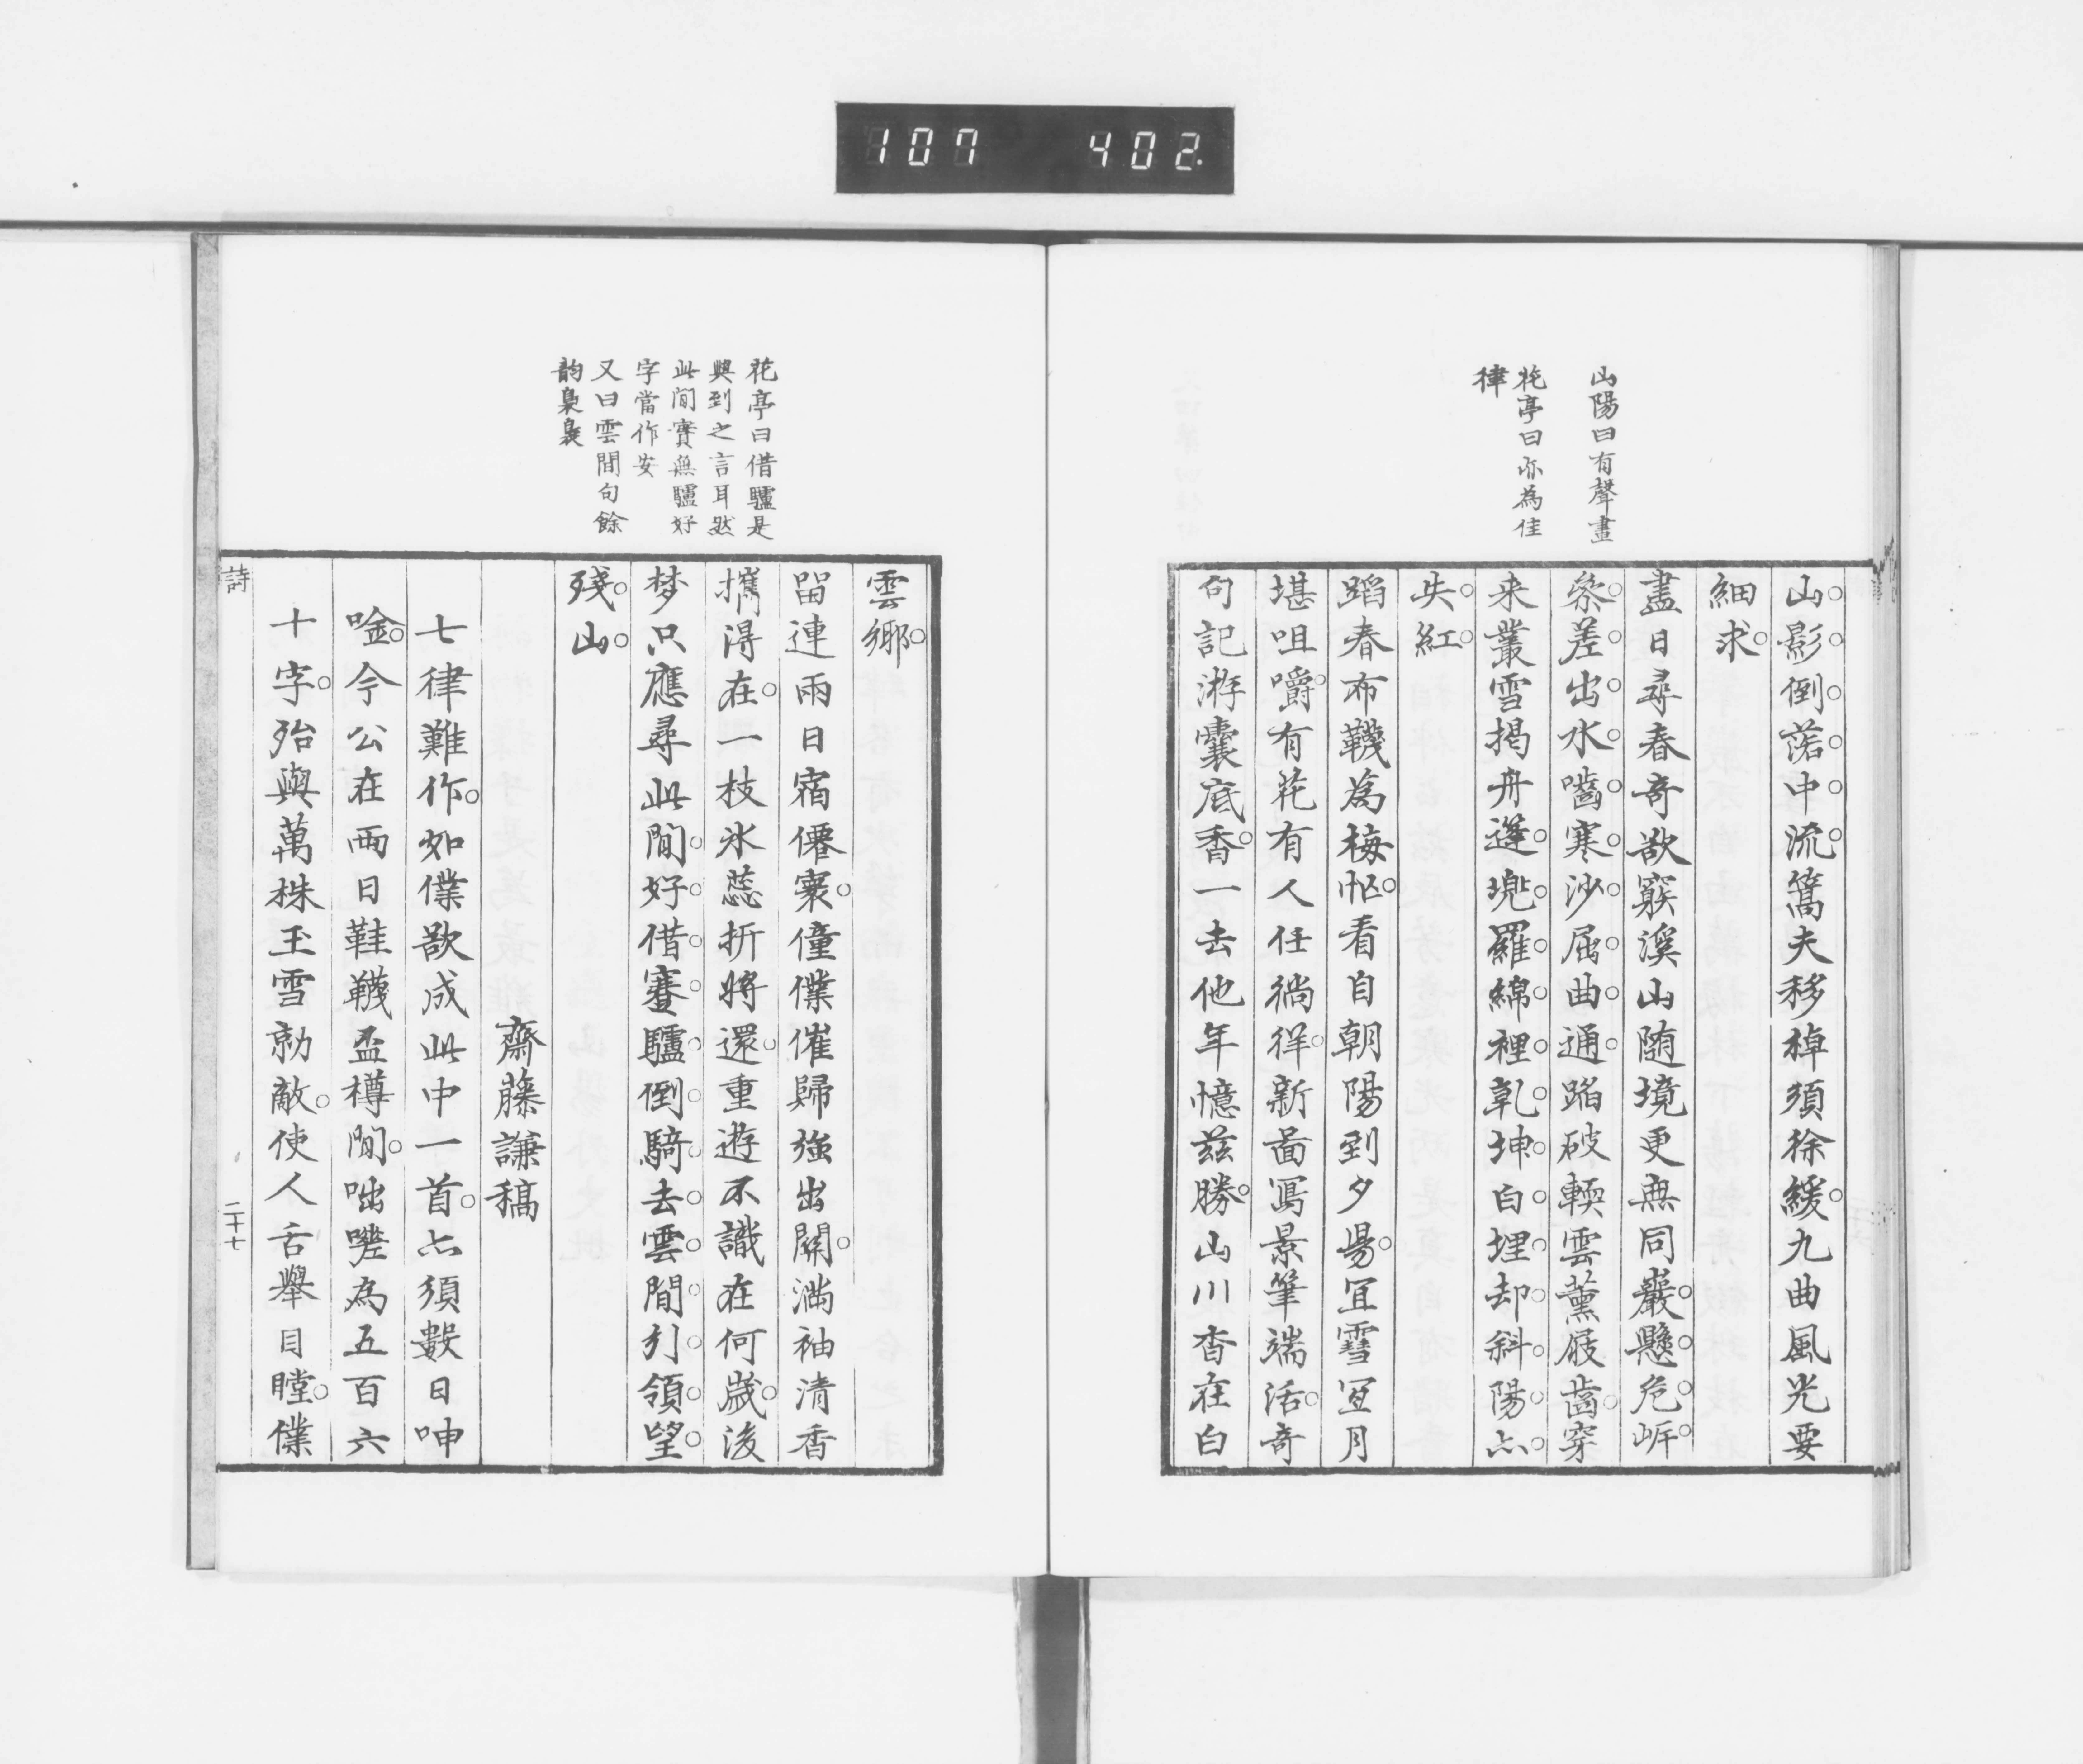 107 402
山陽曰有聲畫
花亭曰亦為佳
律
山影倒蘸中流篙夫移棹須徐緩九曲風光要
細求
盡日尋春奇欲窮溪山随境更無同巖懸危岸
參差出水嚙寒沙屈曲通踏破輭雲薰屐齒穿
来叢雪揭舟篷兜羅綿裡乾坤白埋却斜陽亦
失紅
蹈春布韈為梅忙看自朝陽到夕暘宜雪宜月
堪咀嚼有花有人任徜徉新畵寫景筆端活奇
句記游囊底香一去他年憶茲勝山川杳在白
花亭曰借驢是
興到之言耳然
此間實無驢好
字當作安
又曰雲間句餘
韵裊裊
雲郷
留連兩日宿僊寰僮僕催歸強出關満袖清香
攜得在一枝氷蕊折將還重遊不識在何歳後
梦只應尋此間好借蹇驢倒騎去雲間引領望
残山
齋藤謙稿
七律難作如僕欲成此中一首亦須數日呻
唫今公在兩日鞋韈盃樽間咄嗟為五百六
十字殆與萬株玉雪勍敵使人舌舉目瞠僕
詩
二十七